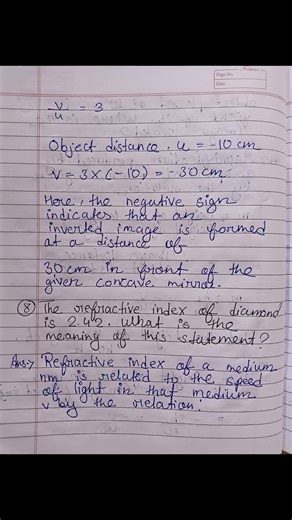 Page No.
Date
v/u = 3
Object distance, u = -10 cm
v = 3 x (-10) = -30 cm
Here, the negative sign
indicates that an
inverted image is formed
at a distance of
30 cm in front of the
given concave mirror.
(8) The refractive index of diamond
is 2.42. What is the
meaning of this statement?
Ans:→ Refractive index of a medium
nm is related to the speed
of light in that medium
v by the relation: